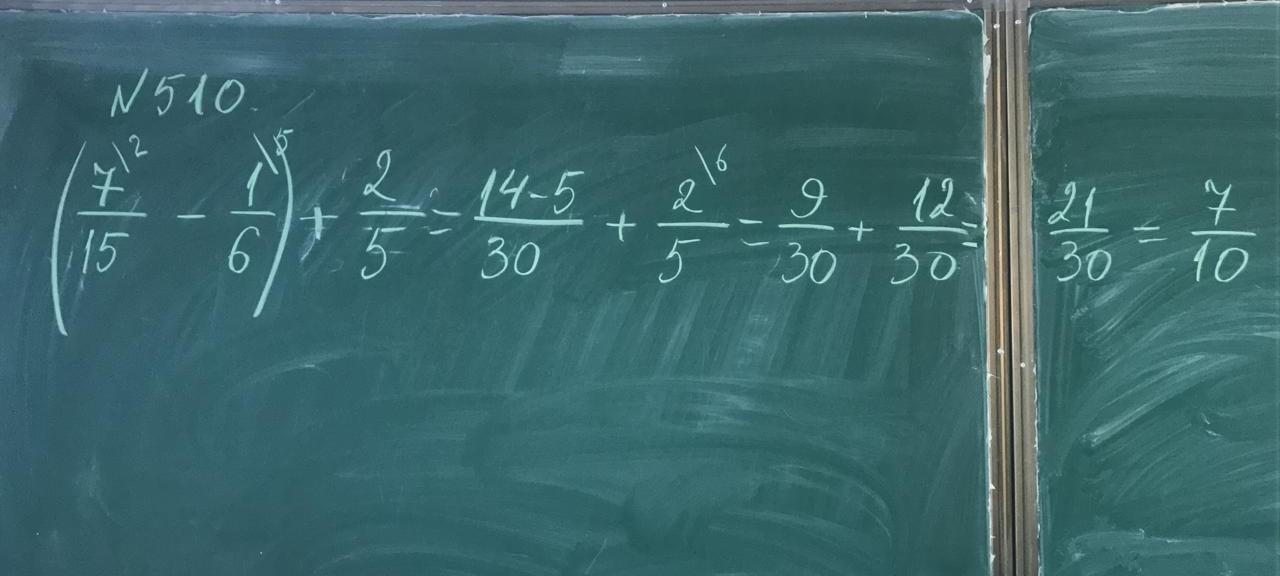 N510.
(7\2/15 - 1\5/6) + 2/5 = 14-5/30 + 2\6/5 = 9/30 + 12/30 = 21/30 = 7/10